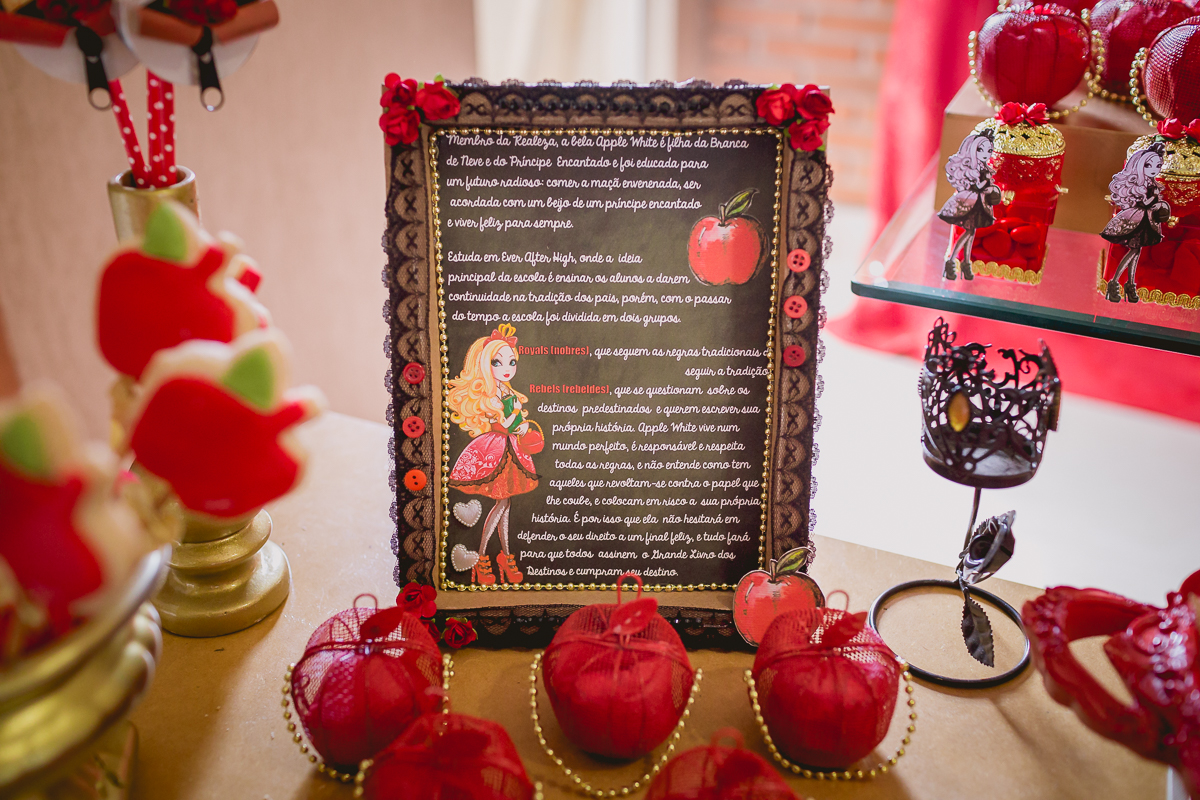 Membro da Realeza, a bela Apple White é filha da Branca
de Neve e do Príncipe Encantado e foi educada para
um futuro radioso: comer a maçã envenenada, ser
acordada com um beijo de um príncipe encantado
e viver feliz para sempre.
Estuda em Ever After High, onde a ideia
principal da escola é ensinar os alunos a darem
continuidade na tradição dos pais, porém, com o passar
do tempo a escola foi dividida em dois grupos.
Royals (nobres), que seguem as regras tradicionais d
seguir a tradição
Rebels (rebeldes), que se questionam sobre os
destinos predestinados e querem escrever sua
própria história. Apple White vive num
mundo perfeito, é responsável e respeita
todas as regras, e não entende como tem
aqueles que revoltam-se contra o papel que
lhe coube, e colocam em risco a sua própria
história. É por isso que ela não hesitará em
defender o seu direito a um final feliz, e tudo fará
para que todos assinem o Grande Livro dos
Destinos e cumpram seu destino.